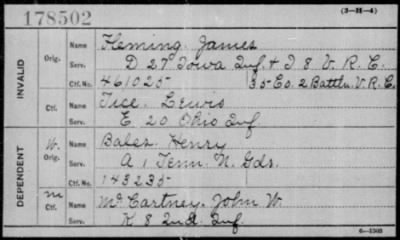 178502
(3-H-4)
INVALID
Orig.
Name Fleming. James
Serv. D 27 Iowa Inf. & I 8 V. R. C.
Ctf. No. 461025 35 Co. 2 Battln. V. R. C.
Ctf.
Name Tice. Lewis
Serv. E. 20 Ohio Inf.
DEPENDENT
W. Orig.
Name Bales. Henry
Serv. A 1 Tenn. N. Gds.
Ctf. No. 143235
M Ctf.
Name McCartney. John W.
Serv. K 8 Ind. Inf.